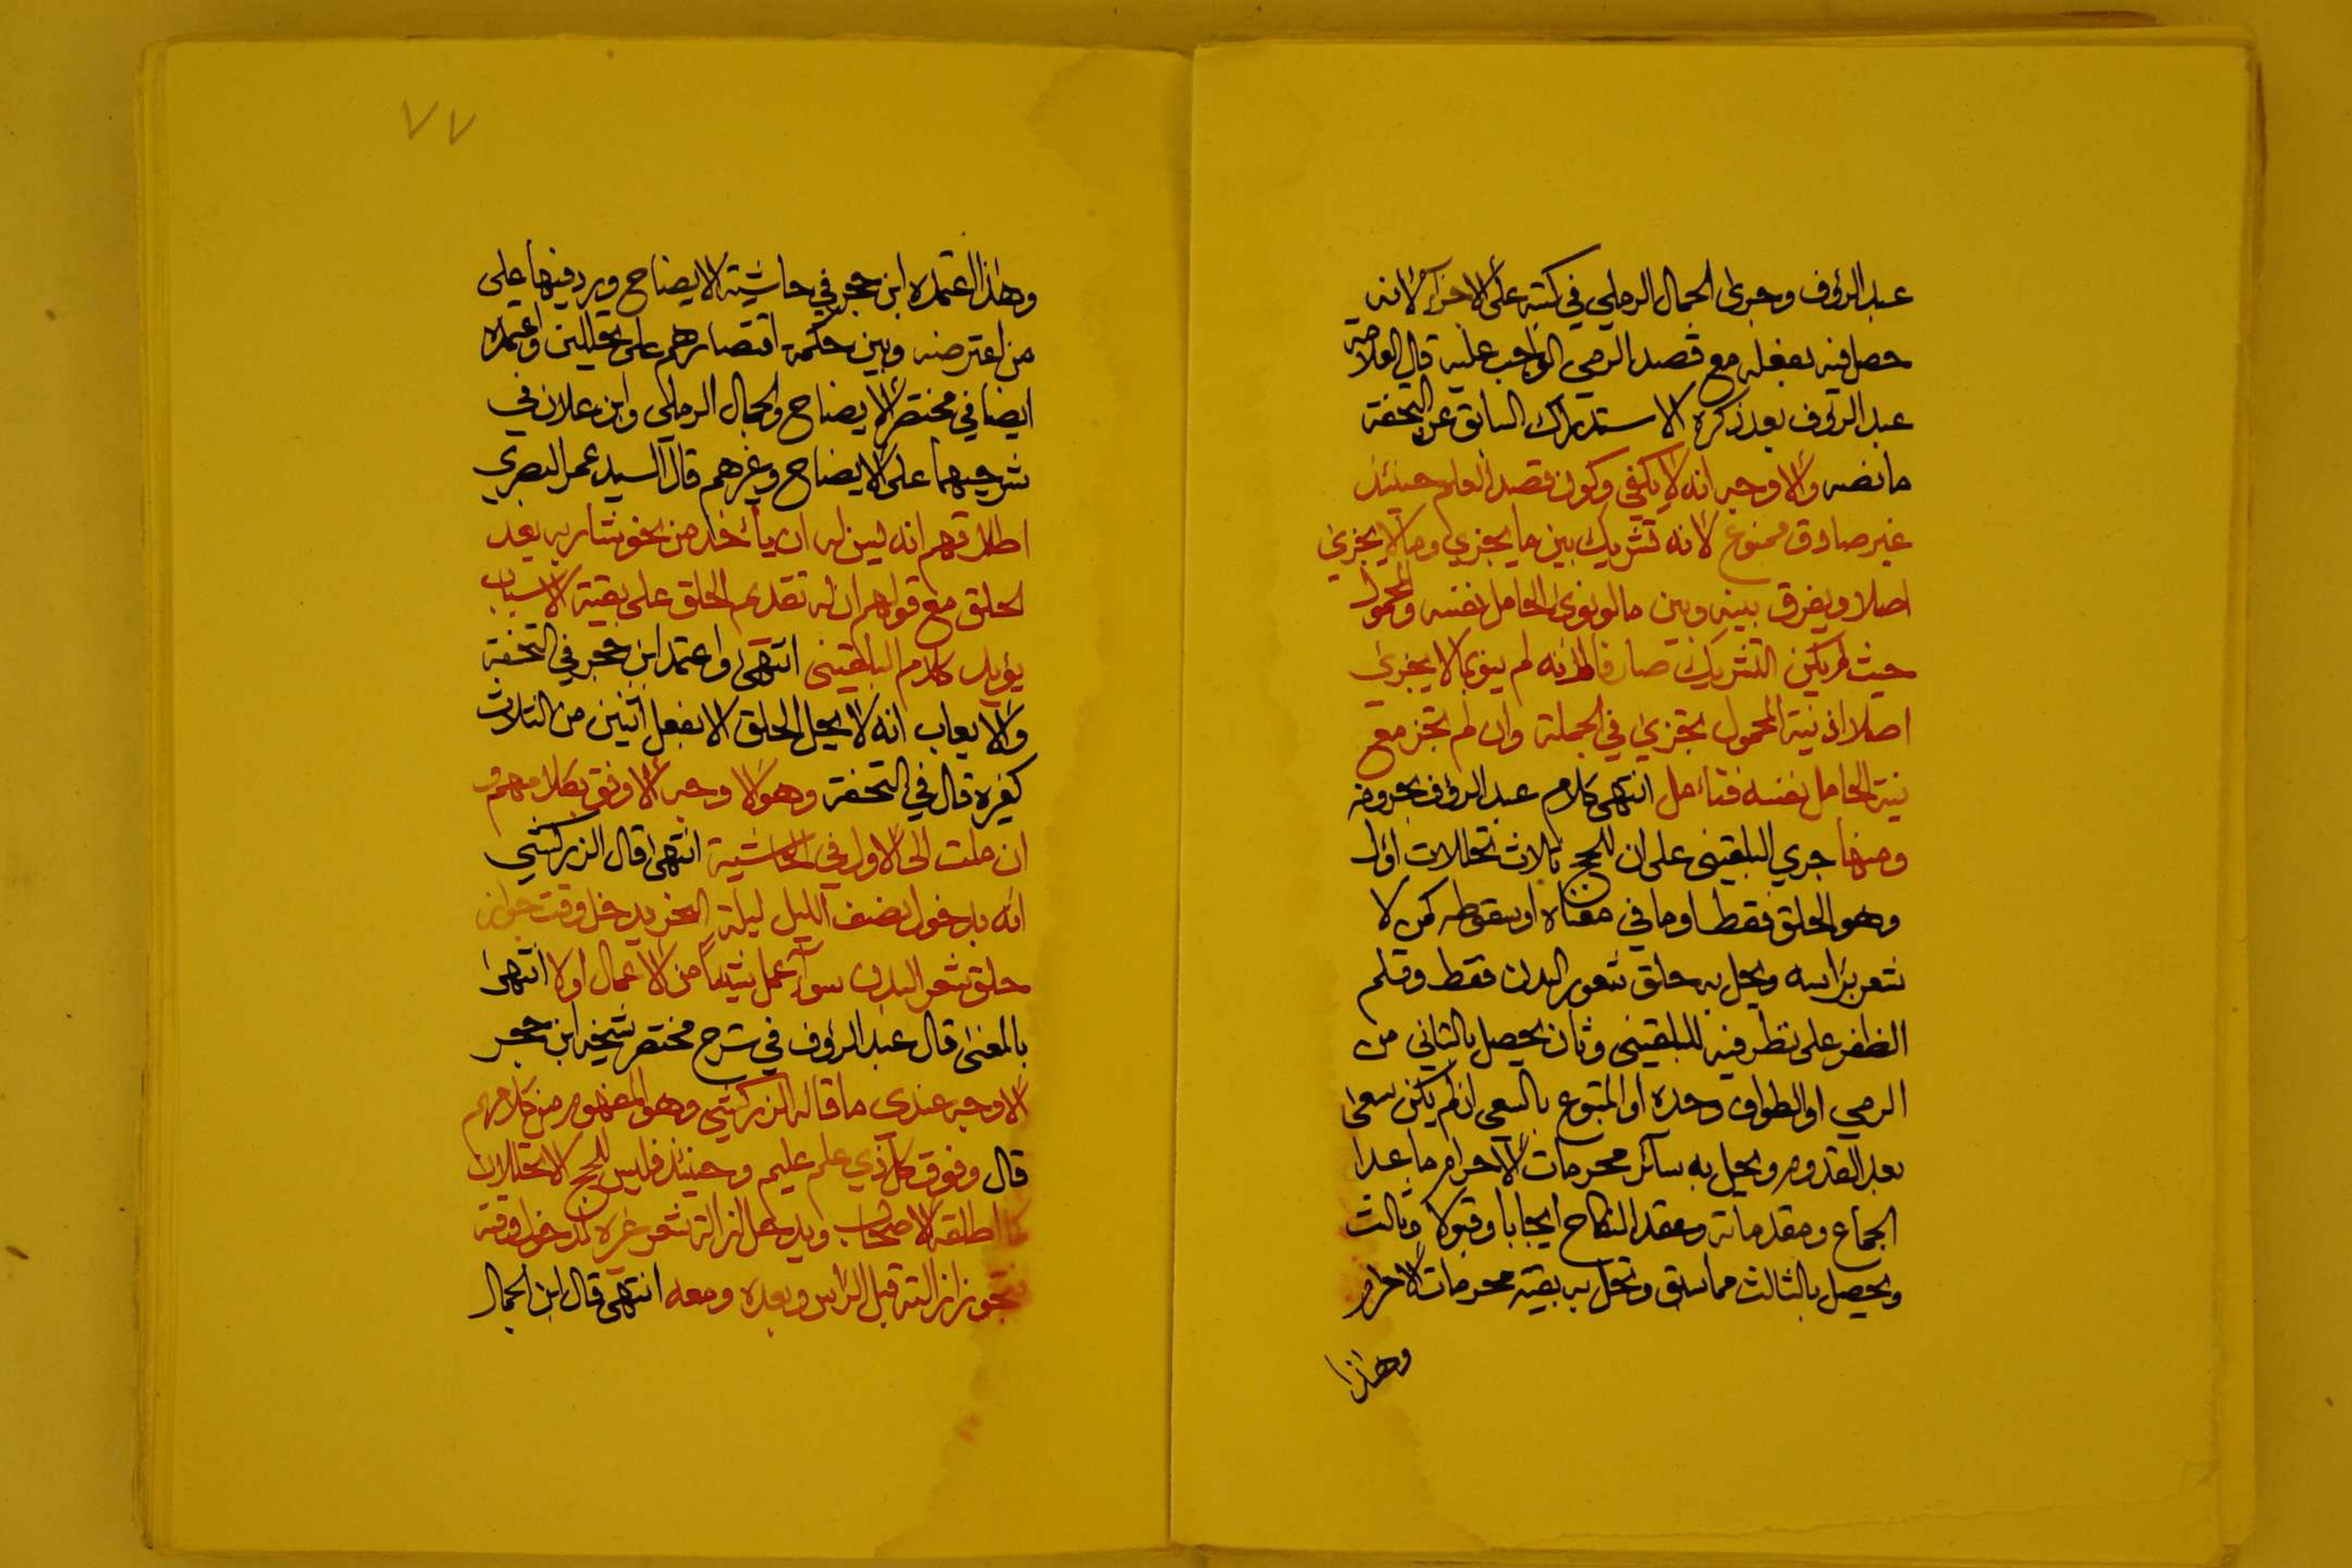 عبد الرؤف وجرى الجمال الرملي في كتبه على الاجزاء لانه
حصل فيه بفعله مع قصد الرمي الواجب عليه قال العلامة
عبد الرؤف بعد ذكره الاستدراك السابق عن التحفة
ما نصه والاوجه انه لا يكفي وكون قصد العلم حينئذ
غير صارف ممنوع لانه تشريك بين ما يجزي وما لا يجزئ
اصلا ويفرق بينه وبين ما لو نوى الحامل نفسه والمحمول
حيث لم يكن التشريك صارفا لانه لم ينو ما لا يجزئ
اصلا اذ نية المحمول تجزي في الجملة وان لم تجز مع
نية الحامل نفسه فتامل انتهى كلام عبد الرؤف بحروفه
ومنها جرى البلقيني على ان للحج ثلاث تحللات اول
وهو الحلق فقط او ما في معناه او سقوطه كمن لا
شعر براسه ويحل به حلق شعور البدن فقط وقلم
الظفر على نظر فيه للبلقيني وثان يحصل بالثاني من
الرمي او الطواف وحده او المتبوع بالسعي ان لم يكن سعى
بعد القدوم ويحل به سائر محرمات الاحرام ما عدا
الجماع ومقدماته وعقد النكاح ايجابا وقبولا وثالث
ويحصل بالثالث مما سبق وتحل به بقية محرمات الاحرام
وهذا
٧٧
وهذا اعتمده ابن حجر في حاشية الايضاح ورد فيها على
من اعترضه وبين حكمة اقتصارهم على تحللين واعتمده
ايضا في مختصر الايضاح والجمال الرملي وابن علان في
شرحيهما على الايضاح وغيرهم قال السيد عمر البصري
اطلاقهم انه ليس له ان ياخذ من نحو شاربه بعد
الحلق مع قولهم ان له تقديم الحلق على بقية الاسباب
يؤيد كلام البلقيني انتهى واعتمد ابن حجر في التحفة
والايعاب انه لا يحل الحلق الا بفعل اثنين من الثلاث
كغيره قال في التحفة وهو الاوجه الاوفق بكلامهم و
ان ملت الى الاول في الحاشية انتهى قال الزركشي
انه بدخول نصف الليل ليلة النحر يدخل وقت جواز
حلق شعر البدن سوآء عمل شيئا من الاعمال اولا انتهى
بالمعنى قال عبد الرؤف في شرح مختصر شيخه ابن حجر
الاوجه عندي ما قاله الزركشي وهو المفهوم من كلامهم
قال وفوق كل ذي علم عليم وحينئذ فليس للحج الا تحللان
كما اطلقه الاصحاب ويدخل ازالة شعر غيره بدخول وقته
فتجوز ازالته قبل الراس وبعده ومعه انتهى قال ابن الجمال